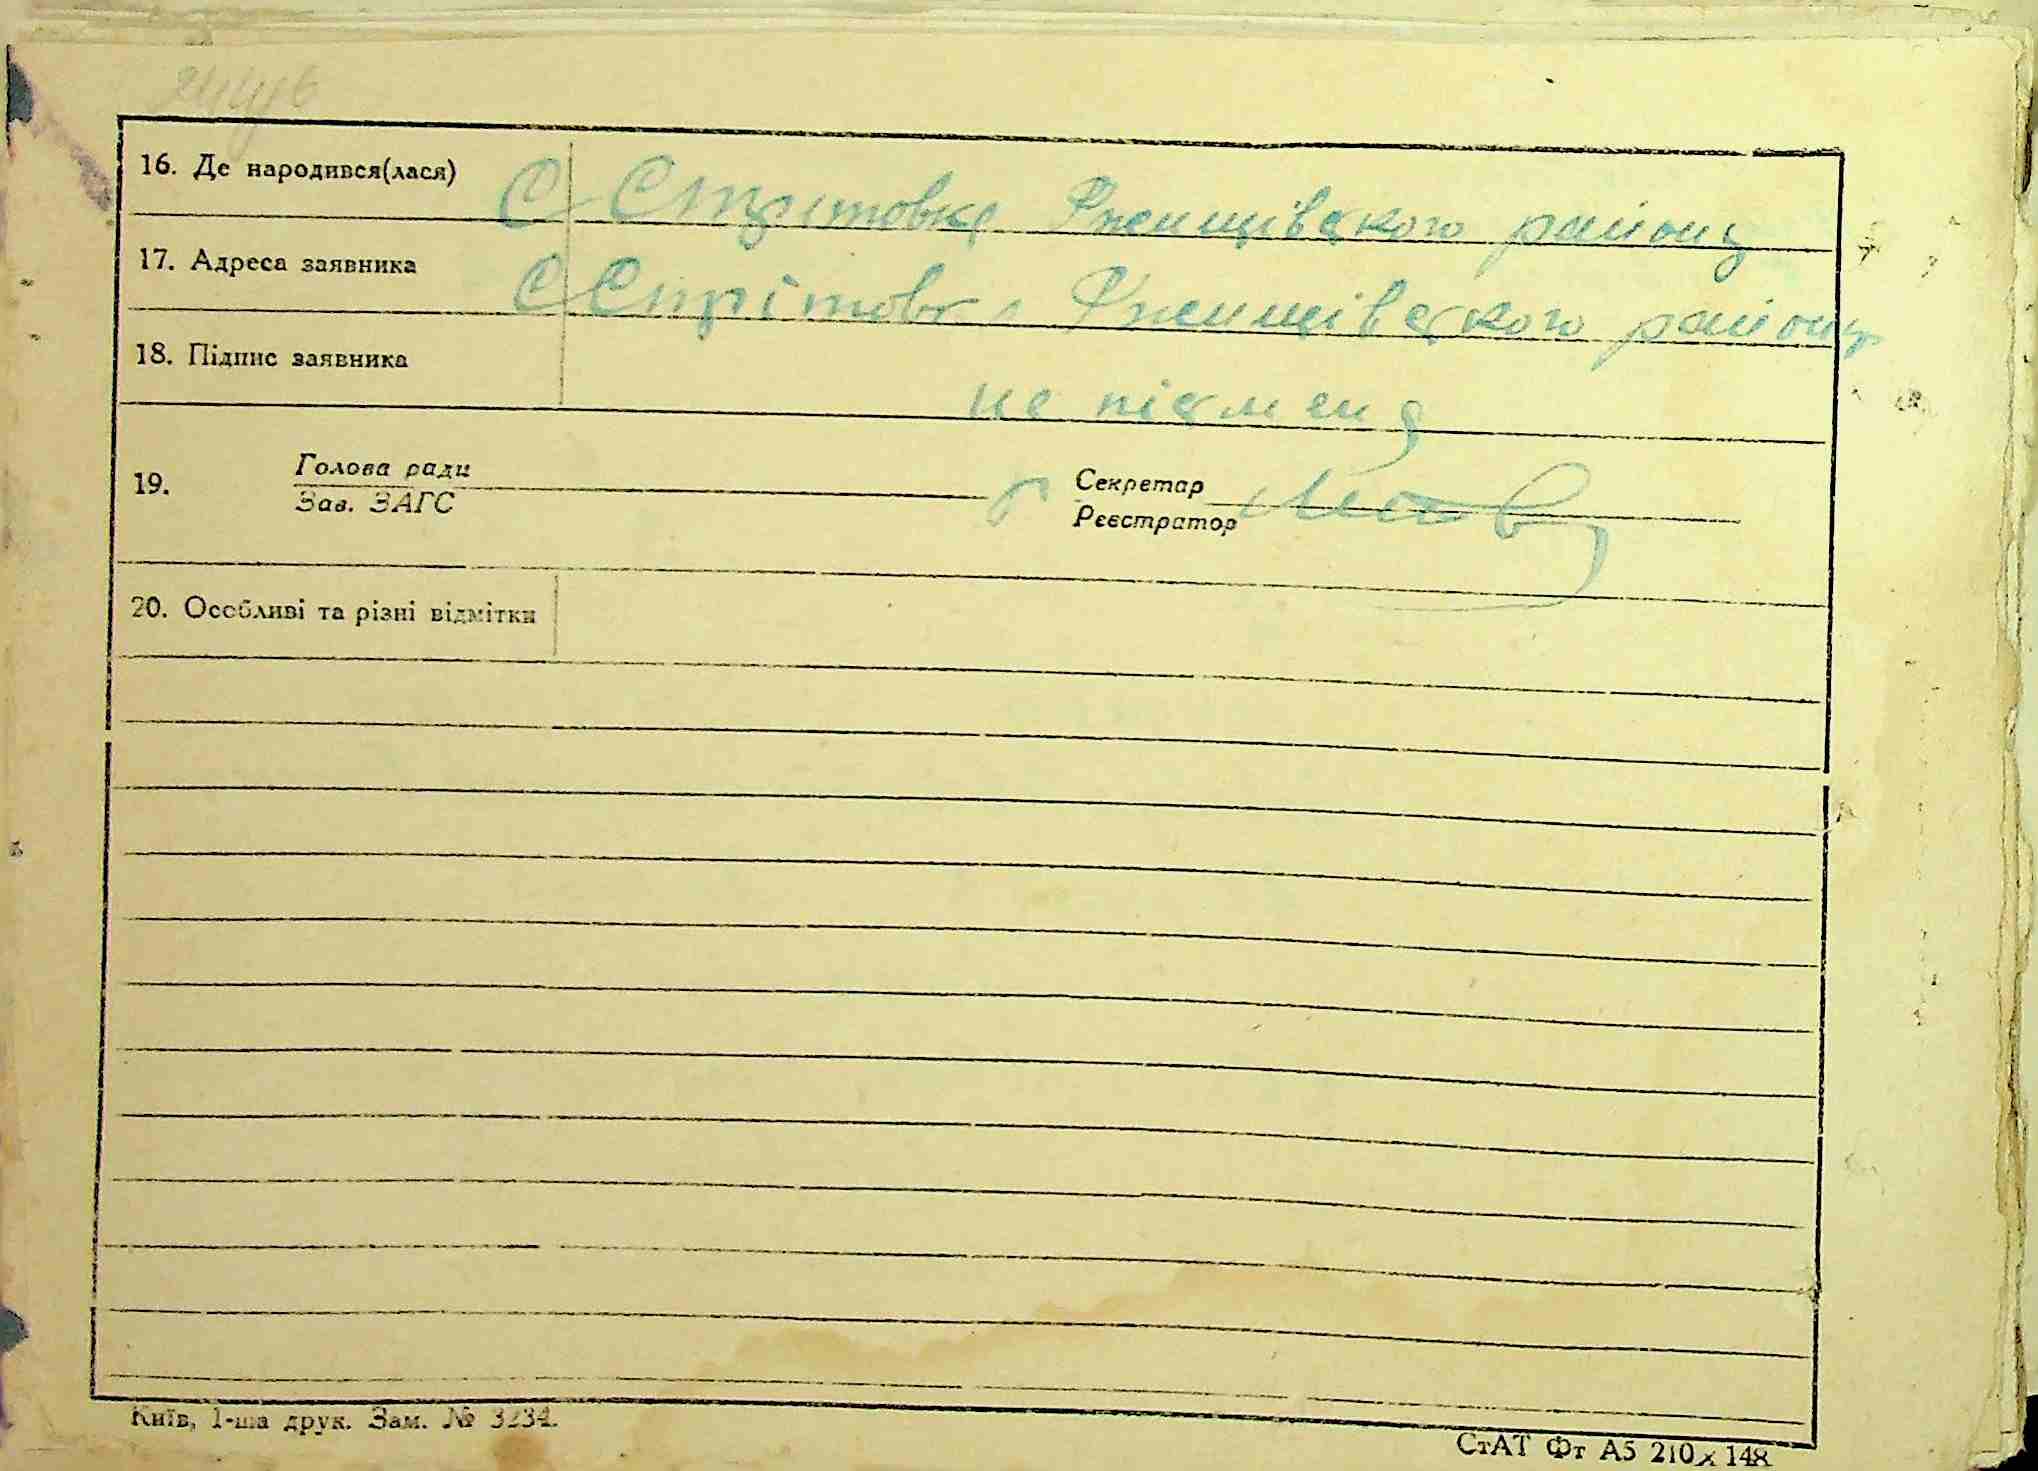 16. Де народився(лася) С Стрітовка Ржищівського району
17. Адреса заявника С Стрітовка Ржищівського району
18. Підпис заявника не писмена
19. Голова ради Секретар
Зав. ЗАГС Реєстратор
20. Особливі та різні відмітки
Київ, 1-ша друк. Зам. № 3234.
СтАТ Фт А5 210х148